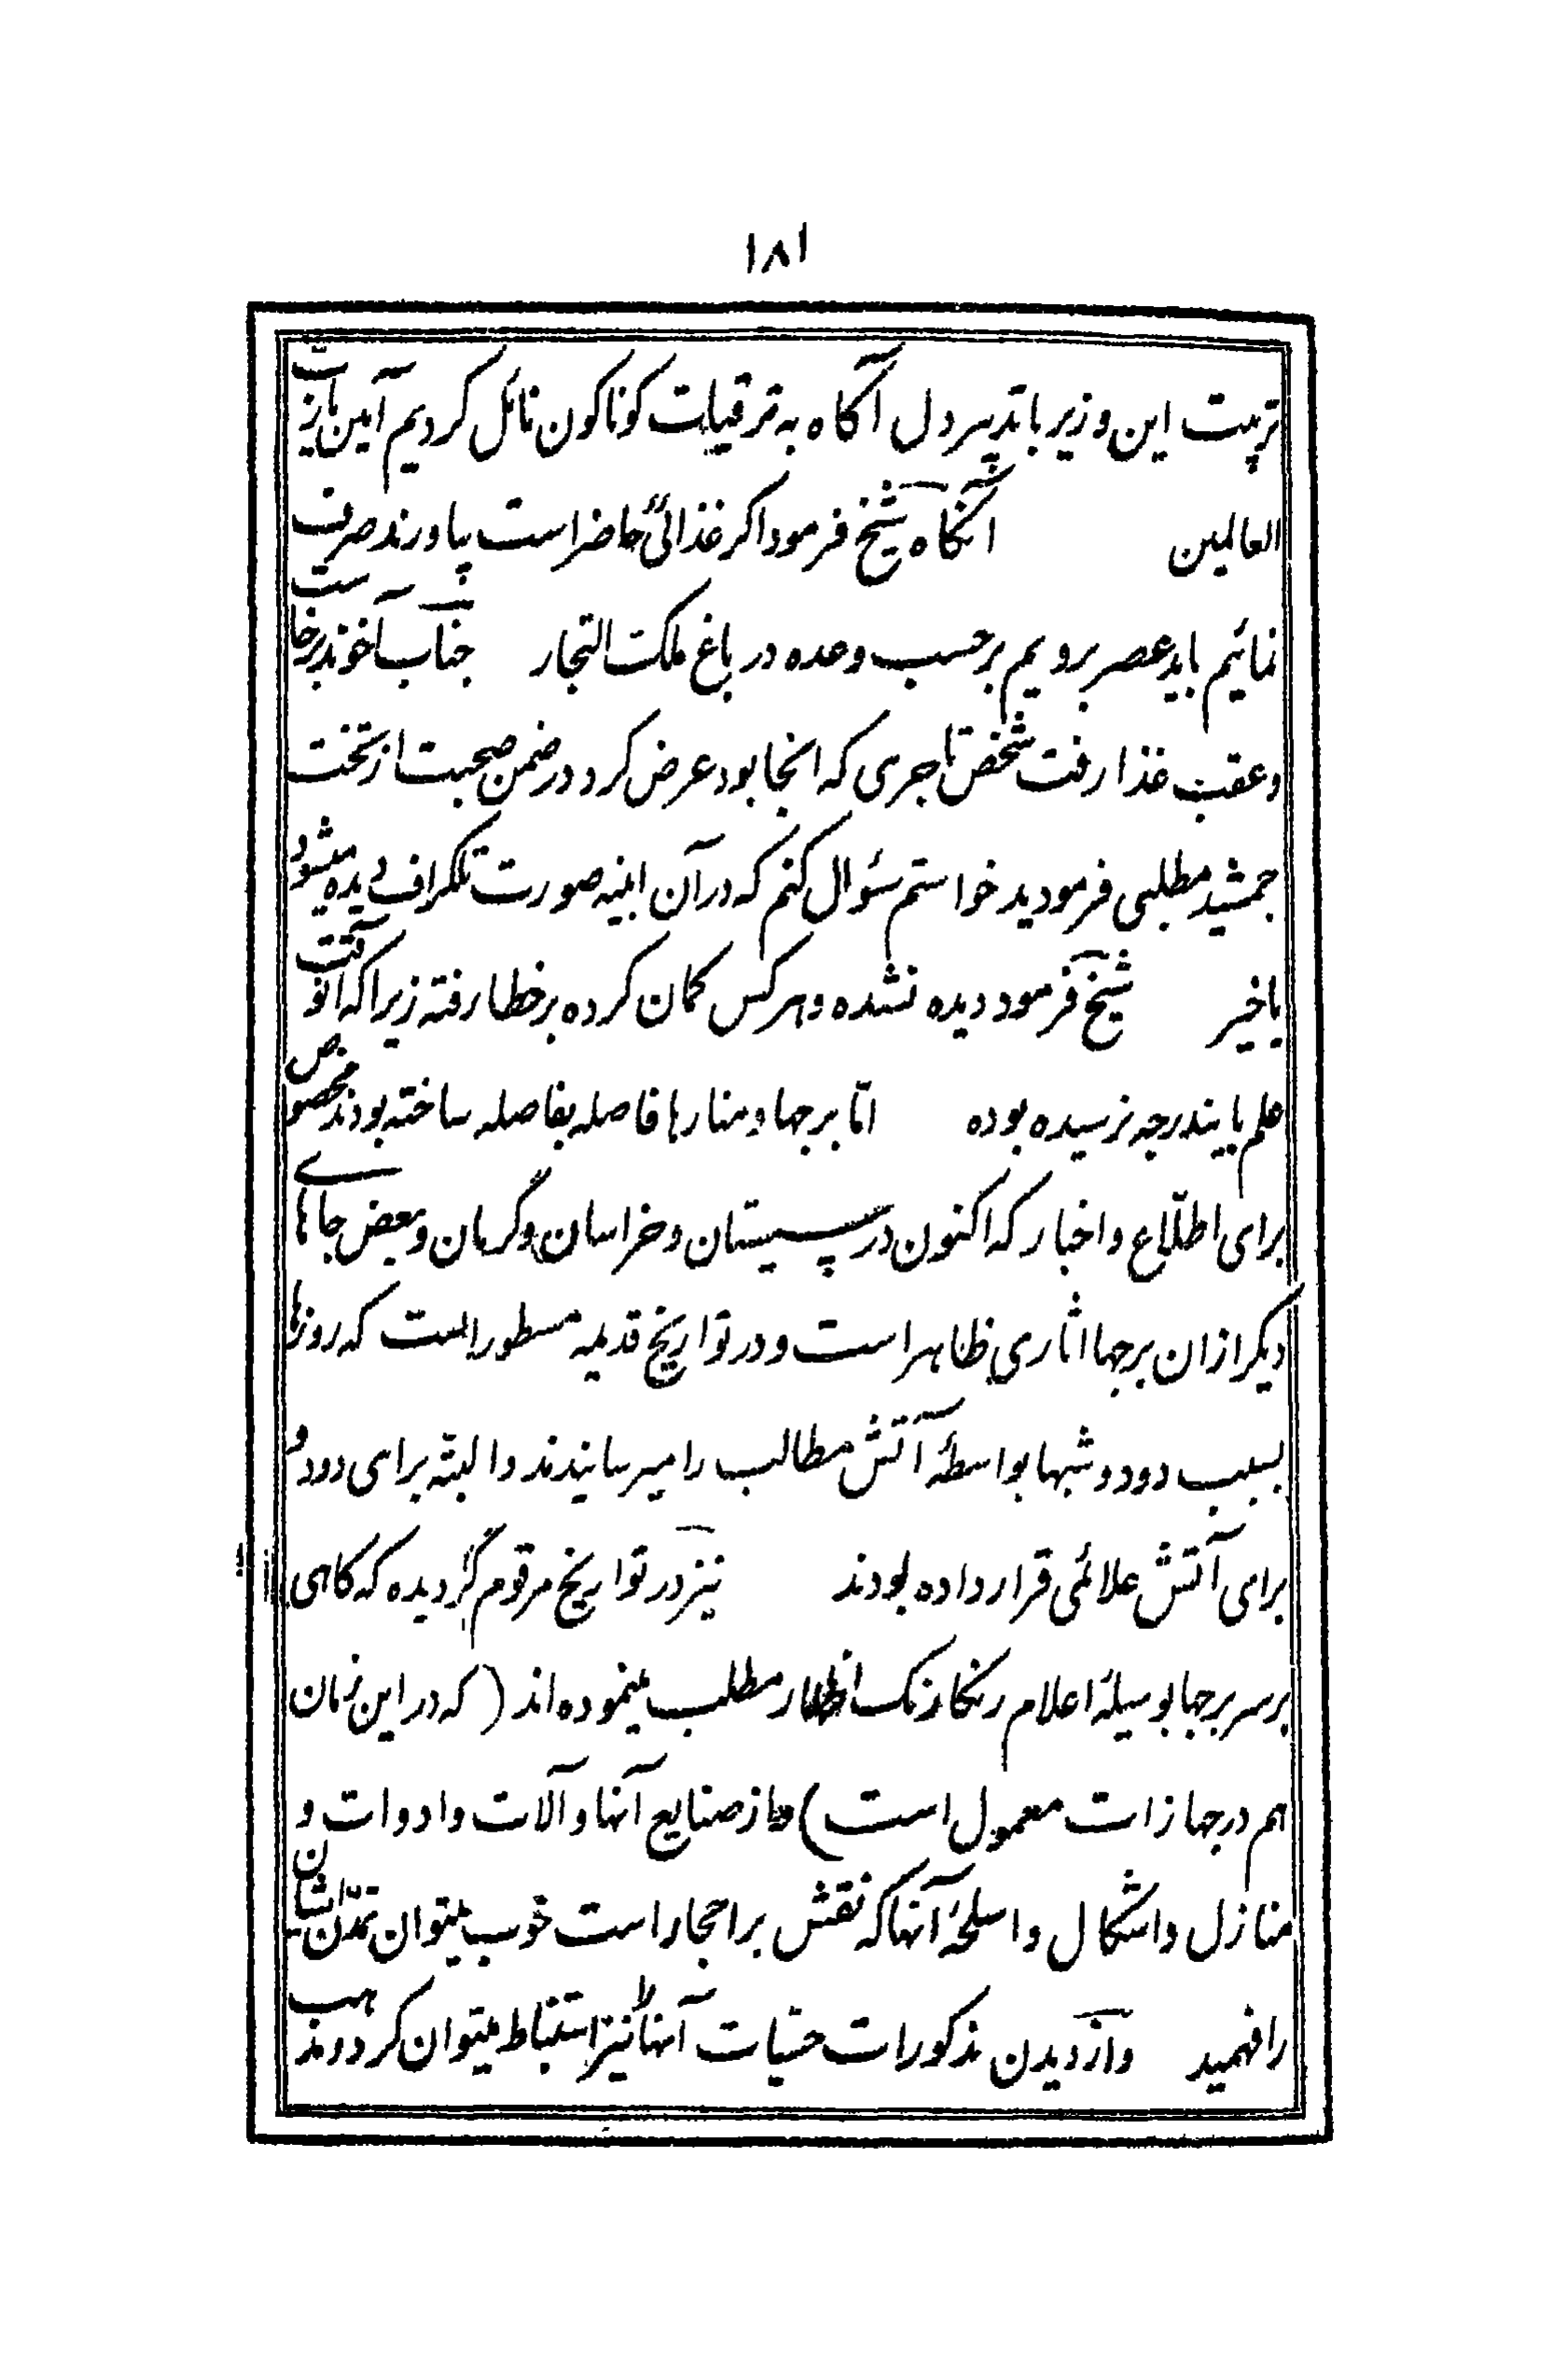 ۱۸۱
تربیت این وزیر با تدبیر دل آگاه به ترقیات کوناکون نائل کردیم آمین یا ربّ
العالمین آنگاه شیخ فرمود اکر غذائی حاضر است بیاورند صرف
نمائیم باید عصر برویم برحسب وعده در باغ ملک التجار جناب آخوند برخاست
و عقب غذا رفت شخص تاجری که انجا بود عرض کرد در ضمن صحبت از تخت
جمشید مطلبی فرمودید خواستم سئوال کنم که در آن ابنیه صورت تلکراف دیده میشود
یا خیر شیخ فرمود دیده نشده و هرکس کمان کرده برخطا رفته زیرا که آنوقت
علم باینذرجه نرسیده بوده امّا برجها و منارها فاصله بفاصله ساخته بودند مخصوص
برای اطلّاع و اخبار که اکنون در سیستان و خراسان و کرمان و بعض جاهای
دیکر ازان برجها اثاری ظاهر است و در تواریخ قدیمه مسطور است که روزها
بسبب دود و شبها بواسطهٔ آتش مطالب را میرسانیدند و البتّه برای دود و
برای آتش علائمی قرار داده بودند نیز در تواریخ مرقوم گردیده که کاهی
بر سر برجها بوسیلهٔ اعلام رنکارنک اظهار مطلب مینموده‌اند (که در این زمان
هم در جهازات معمول است) و از صنایع آنها و آلات و ادوات و
منازل و اشکال و اسلحهٔ آنها که نقش بر احجار است خوب میتوان تمدّن ایشان
را فهمید و از دیدن مذکورات حسّیات آنها نیز استنباط میتوان کرد و مذهب